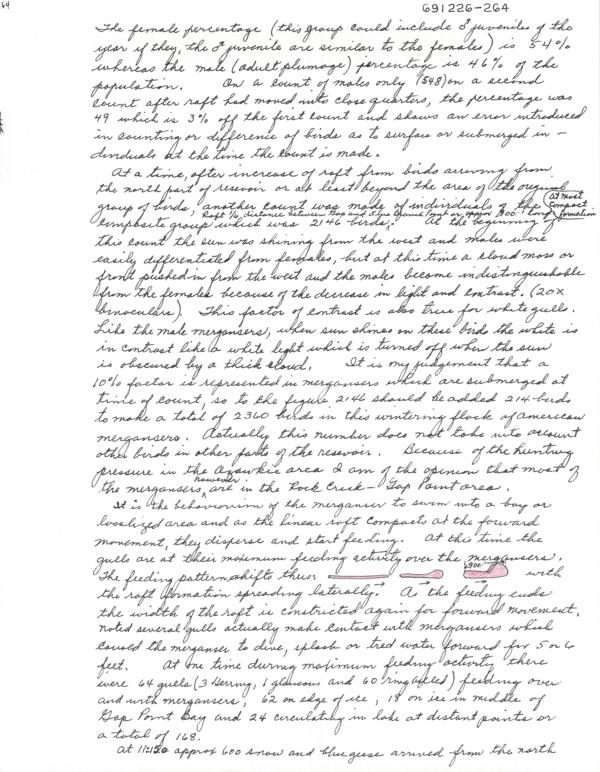 64
691226-264
The female percentage (this group could include ♂ juveniles of the
year if they, the ♂ juvenile are similar to the females) is 54%
whereas the male (adult plumage) percentage is 46% of the
population. On a count of males only (548) on a second
count after raft had moved into close quarters, the percentage was
49 which is 3% off the first count and shows an error introduced
in counting or difference of birds as to surface or submerged in-
dividuals at the time the count is made.
At a time, after increase of raft from birds arriving from
the north part of resevoir or at least beyond the area of the original
group of birds, another count was made of individuals of the compact
composite group which was 2146 birds. At the beginning of
Raft 1/2 distance between Gap and Point or approx 900' long
At most
formation
this count the sun was shining from the west and males were
easily differentiated from females, but at this time a cloud mass or
front pushed in from the west and the males become indistinguishable
from the females because of the decrease in light and contrast. (20x
binoculars). This factor of contrast is also true for white gulls.
Like the male mergansers, when sun shines on these birds the white is
in contrast like a white light which is turned off when the sun
is obscured by a thick cloud. It is my judgement that a
10% factor is represented in mergansers which are submerged at
time of count, so to the figure 2146 should be added 214 birds
to make a total of 2360 birds in this wintering flock of american
mergansers. Actually this number does not take into account
other birds in other parts of the resevoir. Because of the hunting
pressure in the Ozawkie area I am of the opinion that most of
the mergansers, however are in the Rock Creek - Gap Point area.
It is the behaviorism of the merganser to swim into a bay or
localized area and as the linear raft compacts at the forward
movement, they disperse and start feeding. At this time the
gulls are at their maximum feeding activity over the mergansers.
The feeding pattern shifts thus: 900' with
the raft formation spreading laterally. As the feeding ends
the width of the raft is constricted again for forward movement.
Noted several gulls actually make contact with mergansers which
caused the merganser to dive, splash or tred water forward for 5 or 6
feet. At one time during maximum feeding activity there
were 64 gulls (3 Herring, 1 glaucous and 60 ringbilled) feeding over
and with mergansers; 62 on edge of ice, 18 on ice in middle of
Gap Point Bay and 24 circulating in lake at distant points or
a total of 168.
At 11:20 approx 600 snow and blue geese arrived from the north